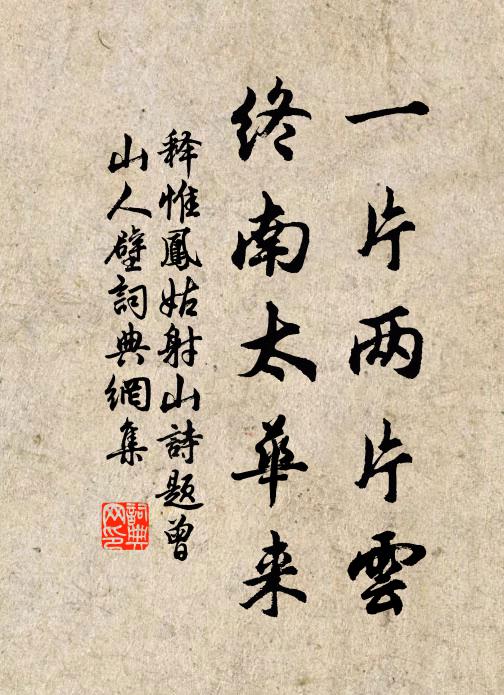 一片两片雲
終南太華来
释惟鳳姑射山詩题曾
山人壁詞典網集
詞典
网印